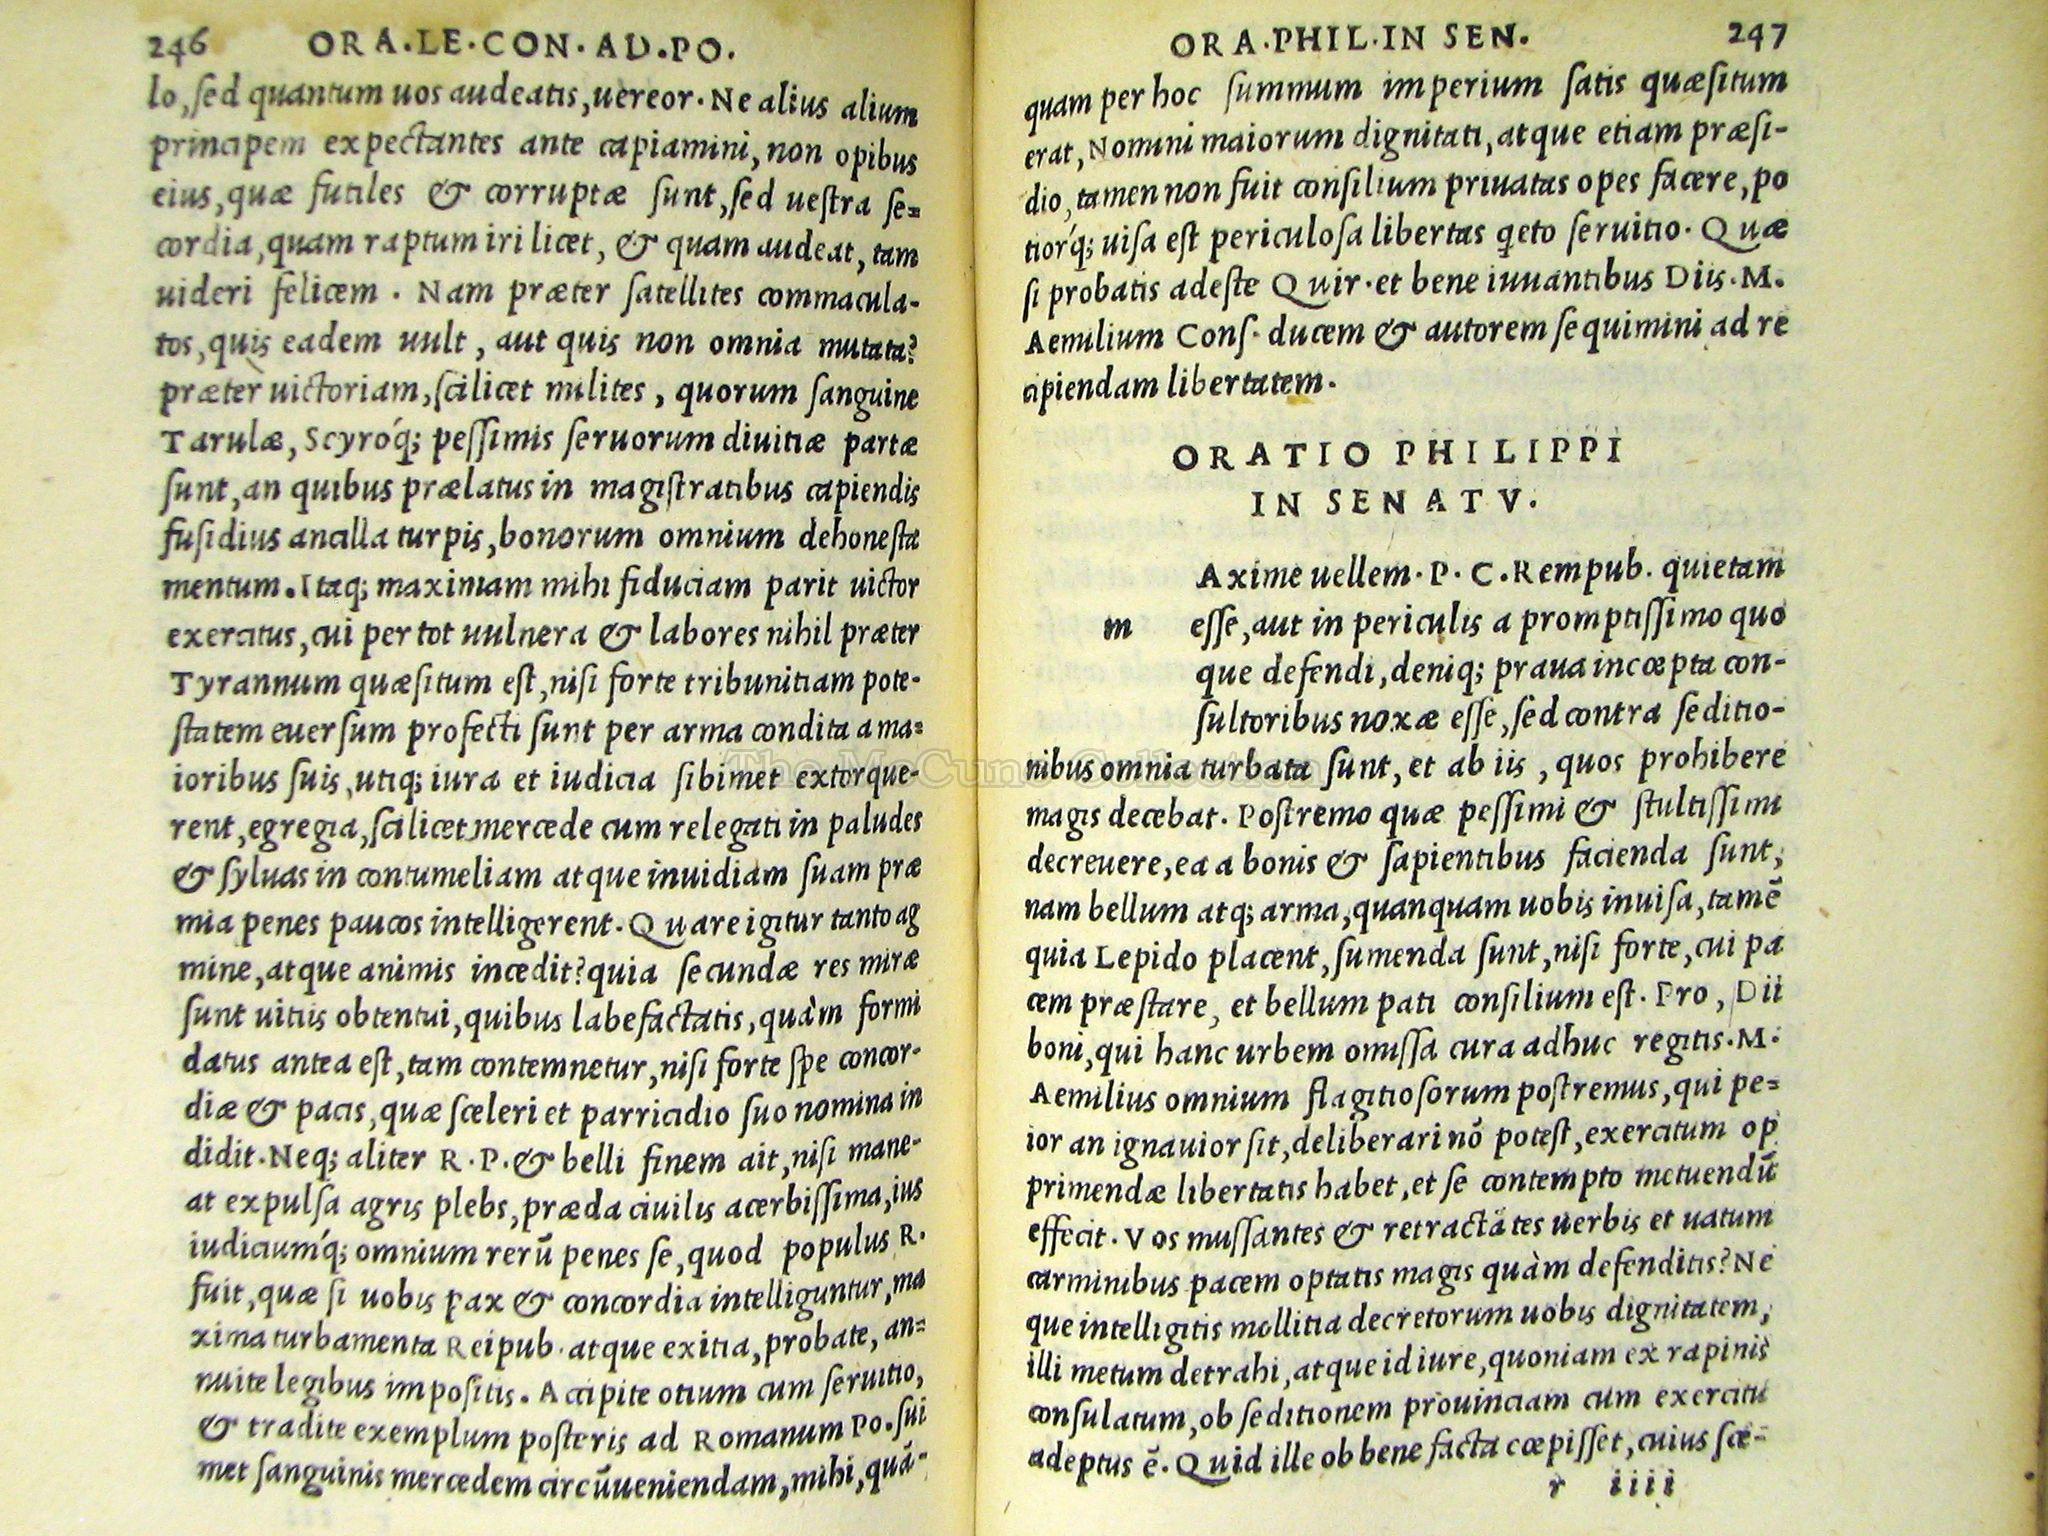 246 ORA.LE.CON.AD.PO.
lo, sed quantum uos audeatis, uereor. Ne alius alium
principem expectantes ante capiamini, non opibus
eius, quæ futiles & corruptæ sunt, sed uestra se=
cordia, quam raptum iri licet, & quam audeat, tam
uideri felicem. Nam præter satellites commacula-
tos, quis eadem uult, aut quis non omnia mutata?
præter uictoriam, scilicet milites, quorum sanguine
Tarulæ, Scyróq; pessimis seruorum diuitiæ partæ
sunt, an quibus prælatus in magistratibus capiendis
fusidius ancilla turpis, bonorum omnium dehonesta
mentum. Itaq; maximam mihi fiduciam parit uictor
exercitus, cui per tot uulnera & labores nihil præter
Tyrannum quæsitum est, nisi forte tribunitiam pote-
statem euersum profecti sunt per arma condita a ma=
ioribus suis, utiq; iura et iudicia sibimet extorque-
rent, egregia, scilicet mercede cum relegati in paludes
& syluas in contumeliam atque inuidiam suam præ
mia penes paucos intelligerent. Quare igitur tanto ag
mine, atque animis incedit? quia secundæ res miræ
sunt uitiis obtentui, quibus labefactatis, quàm formi
datus antea est, tam contemnetur, nisi forte spe concor-
diæ & pacis, quæ sceleri et parricidio suo nomina in
didit. Neq; aliter R.P. & belli finem ait, nisi mane-
at expulsa agris plebs, præda ciuilis acerbissima, ius
iudiciumq́; omnium rerū penes se, quod populus R.
fuit, quæ si uobis pax & concordia intelliguntur, ma
xima turbamenta Reipub. atque exitia, probate, an=
nuite legibus impositis. Accipite otium cum seruitio,
& tradite exemplum posteris ad Romanum Po. sui
met sanguinis mercedem circūueniendam, mihi, quā-
ORA.PHIL.IN SEN. 247
quam per hoc summum imperium satis quæsitum
erat, Nomini maiorum dignitati, atque etiam præsi-
dio, tamen non fuit consilium priuatas opes facere, po
tiorq́; uisa est periculosa libertas q̣eto seruitio. Quæ
si probatis adeste Quir. et bene iuuantibus Diis. M.
Aemilium Cons. ducem & autorem sequimini ad re
cipiendam libertatem.
ORATIO PHILIPPI
IN SENATV.
Axime uellem. P. C. Rempub. quietam
m esse, aut in periculis a promptissimo quo
que defendi, deniq; praua incœpta con-
sultoribus noxæ esse, sed contra seditio-
nibus omnia turbata sunt, et ab iis, quos prohibere
magis decebat. Postremo quæ pessimi & stultissimi
decreuere, ea a bonis & sapientibus facienda sunt,
nam bellum atq; arma, quanquam uobis inuisa, tamē
quia Lepido placent, sumenda sunt, nisi forte, cui pa
cem præstare, et bellum pati consilium est. Pro, Dii
boni, qui hanc urbem omissa cura adhuc regitis. M.
Aemilius omnium flagitiosorum postremus, qui pe=
ior an ignauior sit, deliberari nō potest, exercitum op
primendæ libertatis habet, et se contempto metuendū
effecit. Vos mussantes & retractātes uerbis et uatum
carminibus pacem optatis magis quàm defenditis? Ne
que intelligitis mollitia decretorum uobis dignitatem,
illi metum detrahi, atque id iure, quoniam ex rapinis
consulatum, ob seditionem prouinciam cum exercitu
adeptus ē. Quid ille ob bene facta cœpisset, cuius sce-
r iiii
The McCune Collection